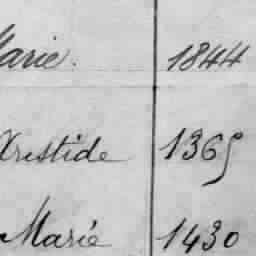 Marie. 1844
Aristide 1365
Marie 1430